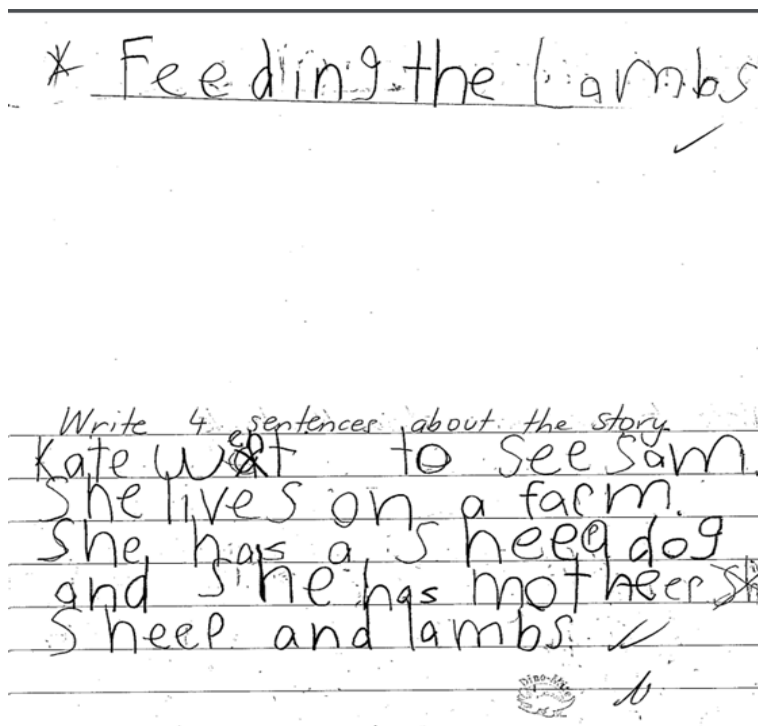 * Feeding the Lambs
Write 4 sentences about the story.
Kate went to see Sam.
She lives on a farm.
She has a sheep dog
and she has motheer
sheep and lambs.
Dino-Mite